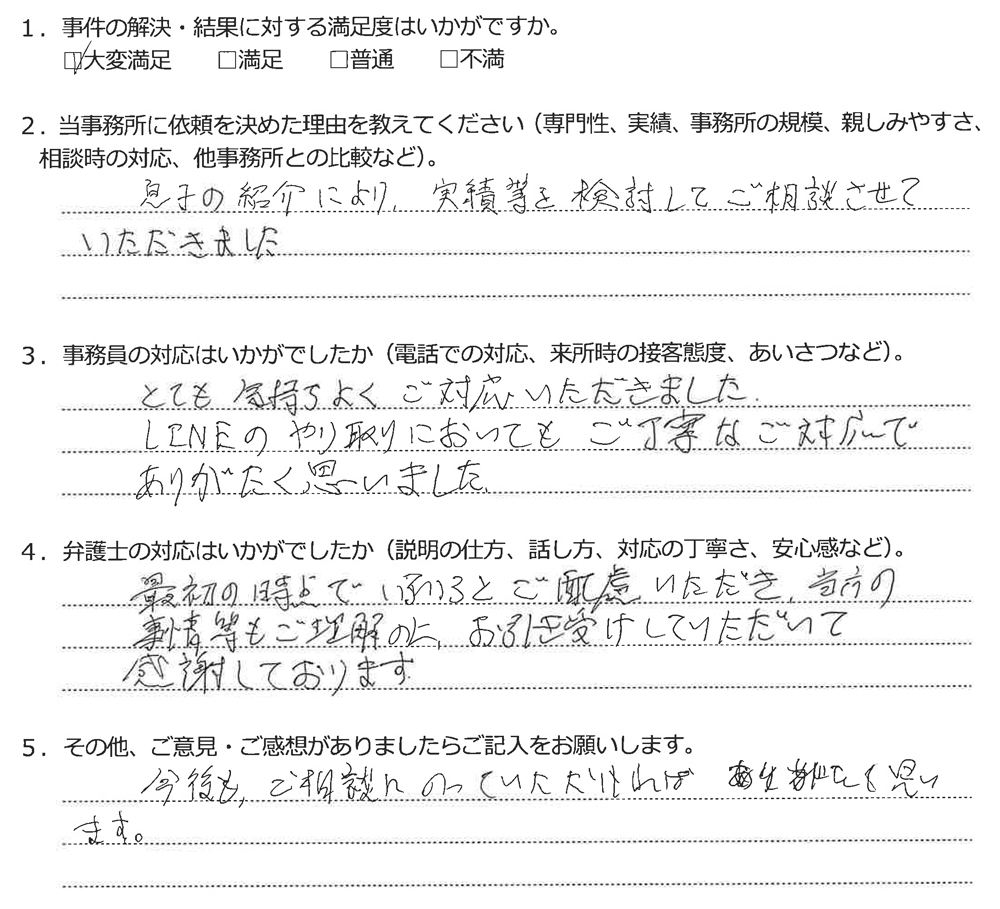 1．事件の解決・結果に対する満足度はいかがですか。
☑大変満足　　□満足　　□普通　　□不満
2．当事務所に依頼を決めた理由を教えてください（専門性、実績、事務所の規模、親しみやすさ、
相談時の対応、他事務所との比較など）。
息子の紹介により、実績等を検討してご相談させて
いただきました
3．事務員の対応はいかがでしたか（電話での対応、来所時の接客態度、あいさつなど）。
とても気持ちよくご対応いただきました.
LINEのやり取りにおいてもご丁寧なご対応で
ありがたく思いました.
4．弁護士の対応はいかがでしたか（説明の仕方、話し方、対応の丁寧さ、安心感など）。
最初の時点でいろいろとご配慮いただき、当方の
事情等もご理解の上、お引き受けしていただいて
感謝しております
5．その他、ご意見・ご感想がありましたらご記入をお願いします。
今後も、ご相談にのっていただければ 思い
ます。